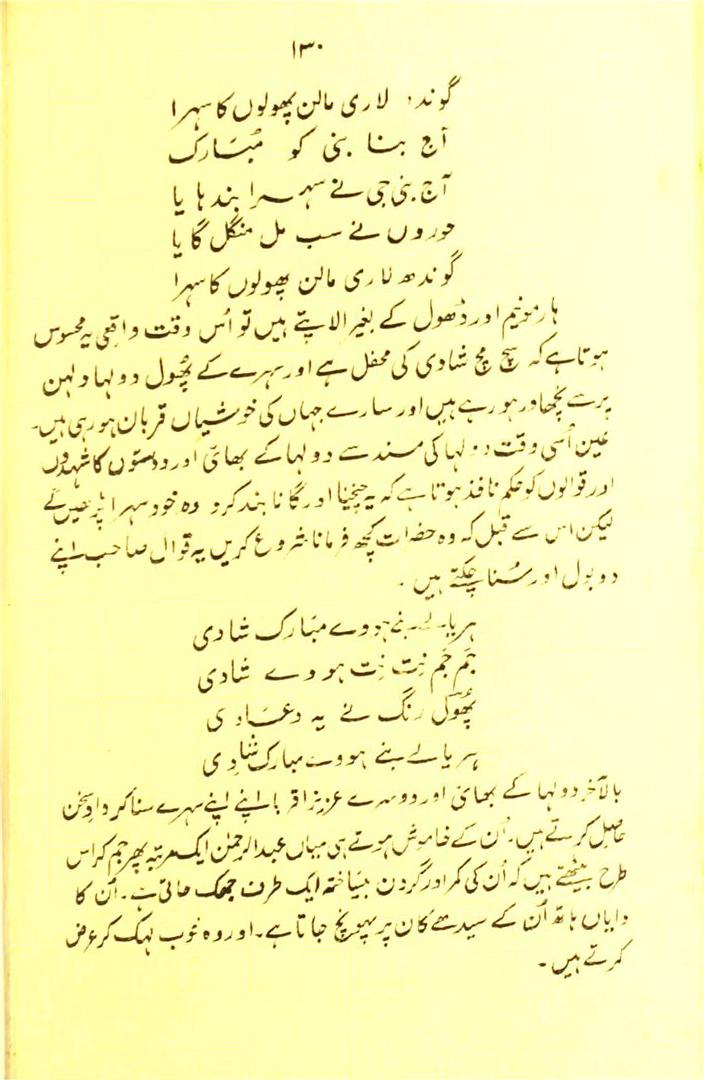 ۱۳۰
گوندھ لاری مالن پھولوں کا سہرا
آج بنا بنی کو مُبَارک
آج بنی جی نے سہرا بندہا یا
حوروں نے سب مل منگل گا یا
گوندھ لاری مالن پھولوں کا سہرا
ہارمونیم اور ڈھول کے بغیر الاپتے ہیں تو اُس وقت واقعی یہ محسوس
ہوتا ہے کہ سچ مچ شادی کی محفل ہے اور سہرے کے پھُول دولہا دلہن
پر سے نچھاور ہو رہے ہیں اور سارے جہاں کی خوشیاں قربان ہو رہی ہیں۔
عین اُسی وقت دولہا کی مسند سے دولہا کے بھائی اور دوستوں کا شہدوں
اور قوالوں کو حکم نافذ ہوتا ہے کہ یہ چیخنا اور گانا بند کرو وہ خود سہرا پڑھیں گے
لیکن اس سے قبل کہ وہ حضرات کچھ فرمانا شروع کریں یہ قوال صاحب اپنے
دو بول اور سُنا چکتے ہیں ۔
ہریالے بنے ہووے مبارک شادی
جَم جَم نِت نِت ہو وے شادی
پھُول رنگ نے یہ دعا دی
ہریالے بنے ہووے مبارک شادی
بالآخر دولہا کے بھائی اور دوسرے عزیز اقربا اپنے اپنے سہرے سنا کر دادِ سخن
حاصل کرتے ہیں۔ اُن کے خاموش ہوتے ہی میاں عبدالرحمٰن ایک مرتبہ پھر جم کر اس
طرح بیٹھتے ہیں کہ اُن کی کمر اور گردن بیساختہ ایک طرف جھک جاتی ہے۔ اُن کا
دایاں ہاتھ اُن کے سیدھے کان پر پہونچ جاتا ہے۔ اور وہ خوب لہک کر عرض
کرتے ہیں ۔